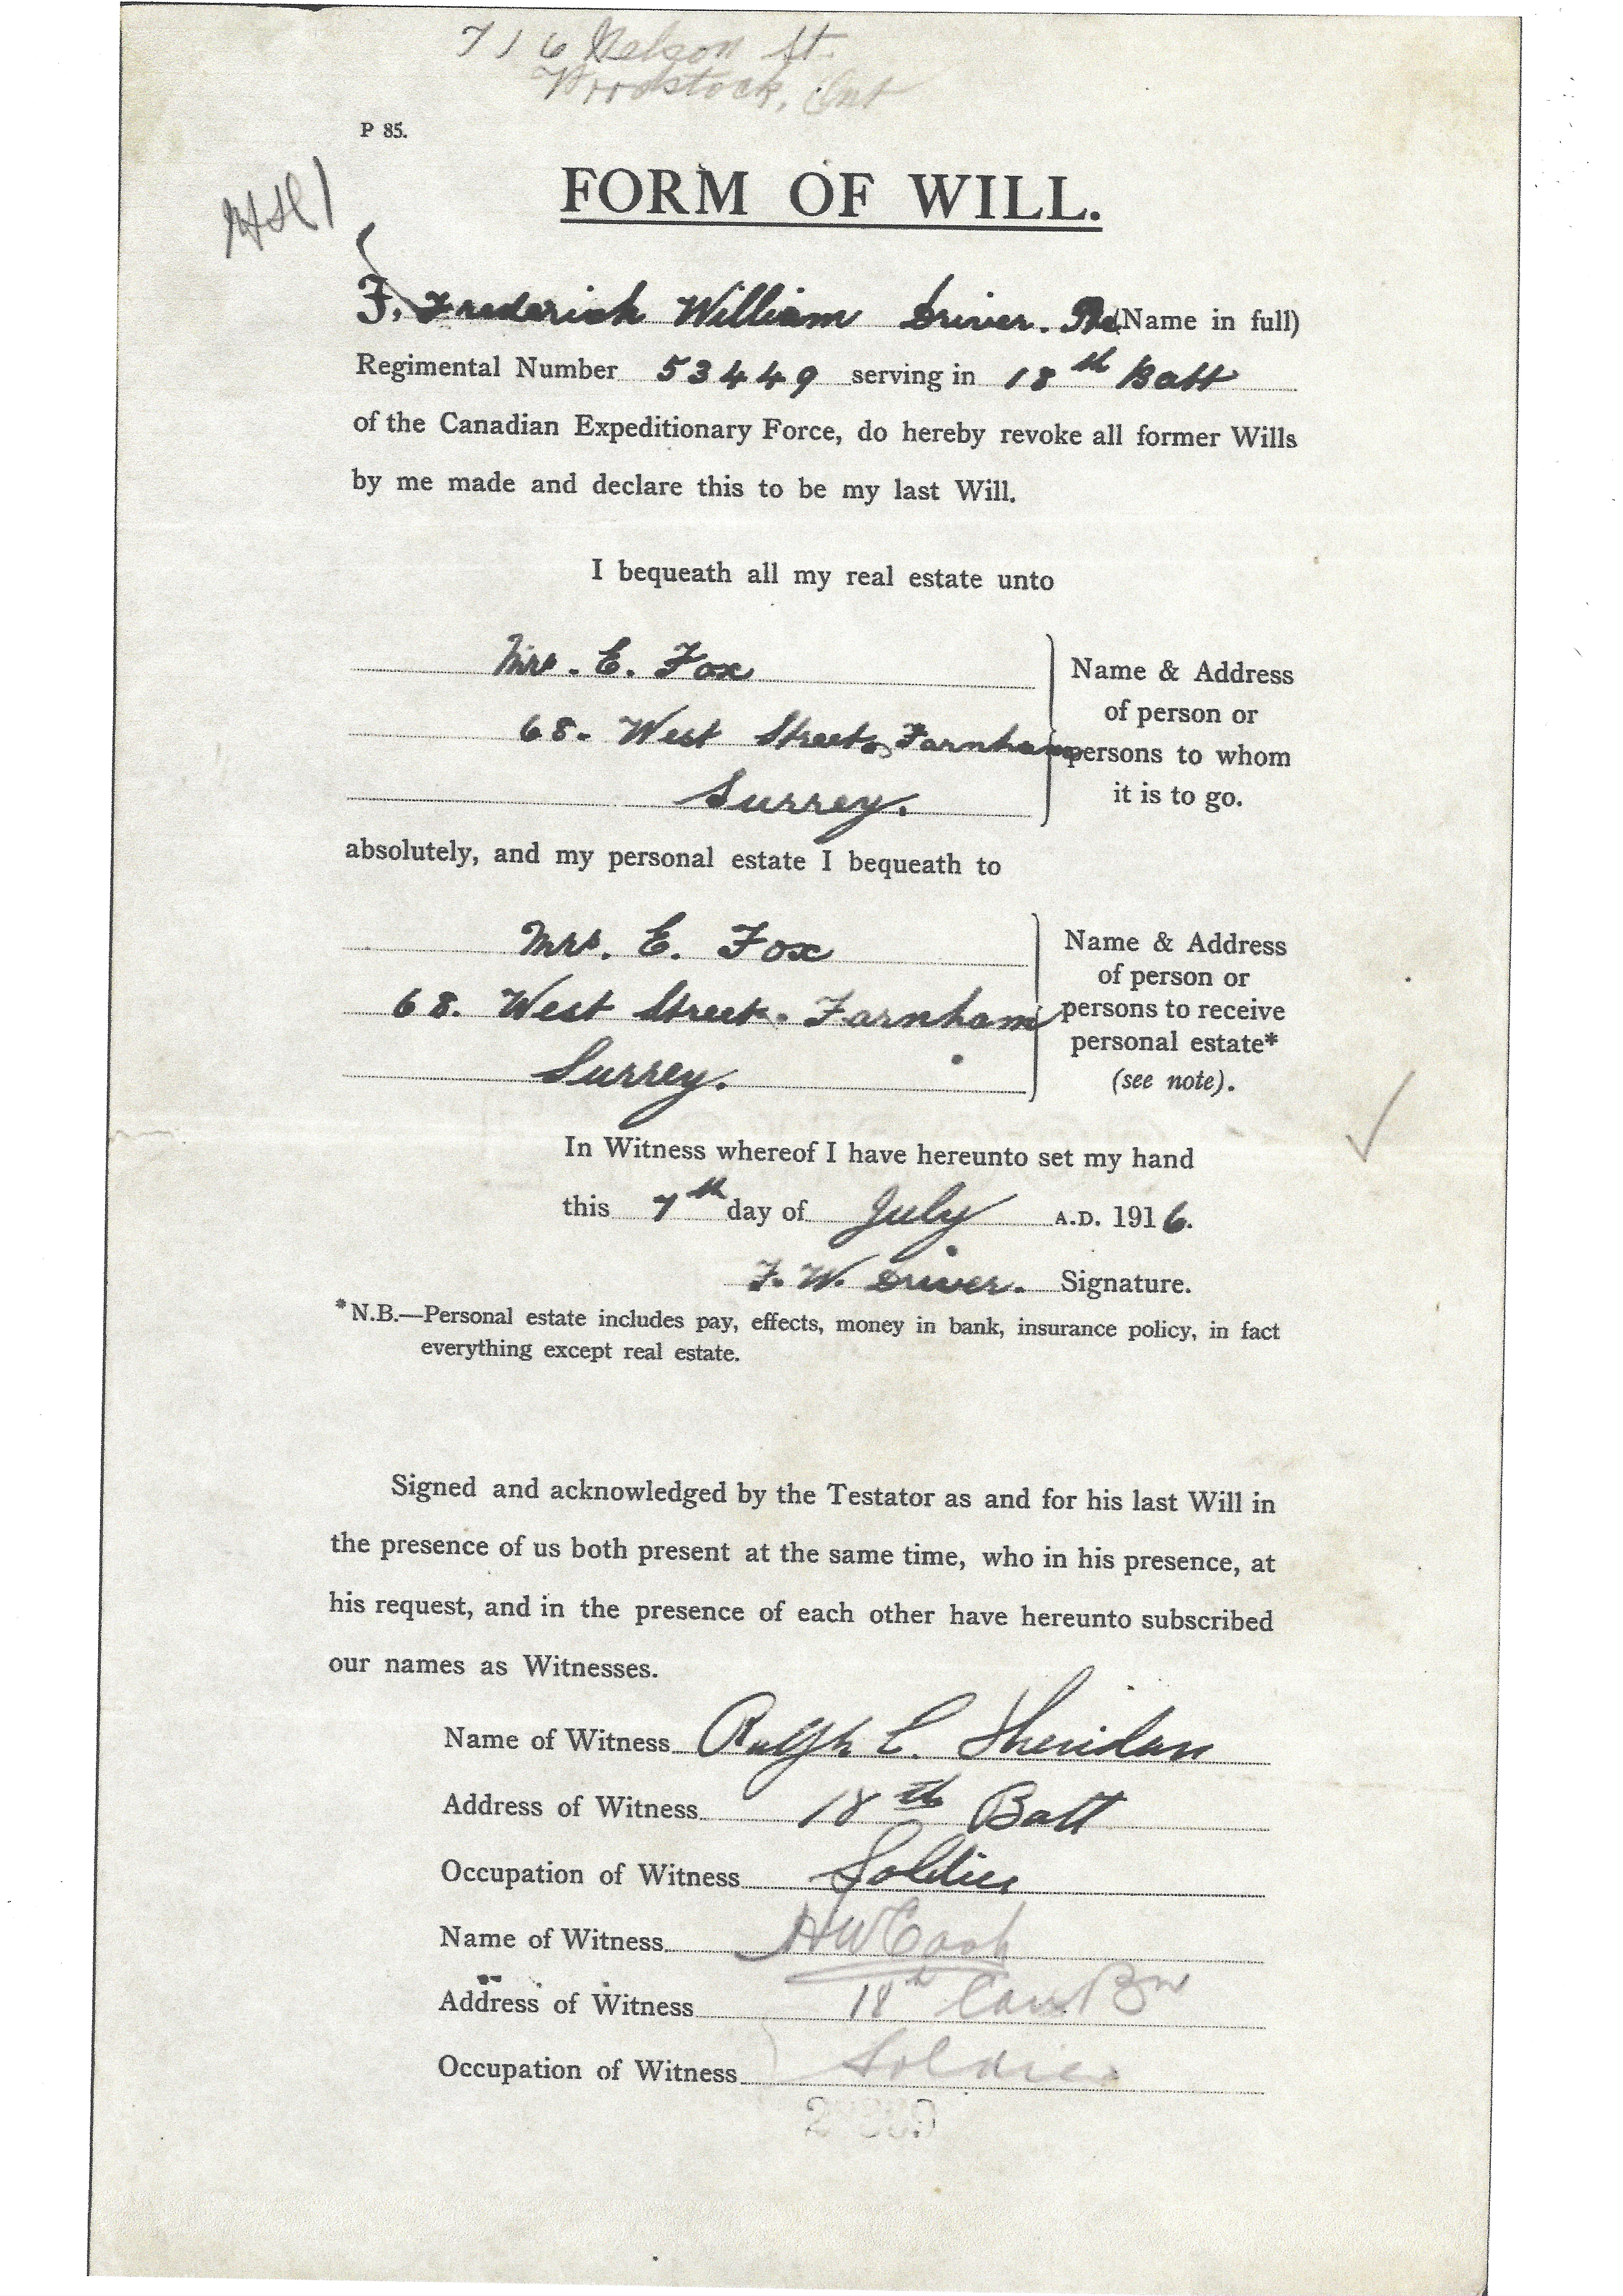 716 Nelson St.
Woodstock, Ont
P 85.
FORM OF WILL.
F. Frederick William Driver. Pte (Name in full)
Regimental Number 53449 serving in 18th Batt
of the Canadian Expeditionary Force, do hereby revoke all former Wills
by me made and declare this to be my last Will.
I bequeath all my real estate unto
Mrs. E. Fox
68. West Street, Farnham
Surrey.
Name & Address
of person or
persons to whom
it is to go.
absolutely, and my personal estate I bequeath to
Mrs. E. Fox
68. West Street. Farnham
Surrey.
Name & Address
of person or
persons to receive
personal estate*
(see note).
In Witness whereof I have hereunto set my hand
this 7th day of July A.D. 1916.
F. W. Driver. Signature.
*N.B.—Personal estate includes pay, effects, money in bank, insurance policy, in fact
everything except real estate.
Signed and acknowledged by the Testator as and for his last Will in
the presence of us both present at the same time, who in his presence, at
his request, and in the presence of each other have hereunto subscribed
our names as Witnesses.
Name of Witness Ralph C. Sheridan
Address of Witness 18th Batt
Occupation of Witness Soldier
Name of Witness HW Cook
Address of Witness 18th Can Bn
Occupation of Witness Soldier